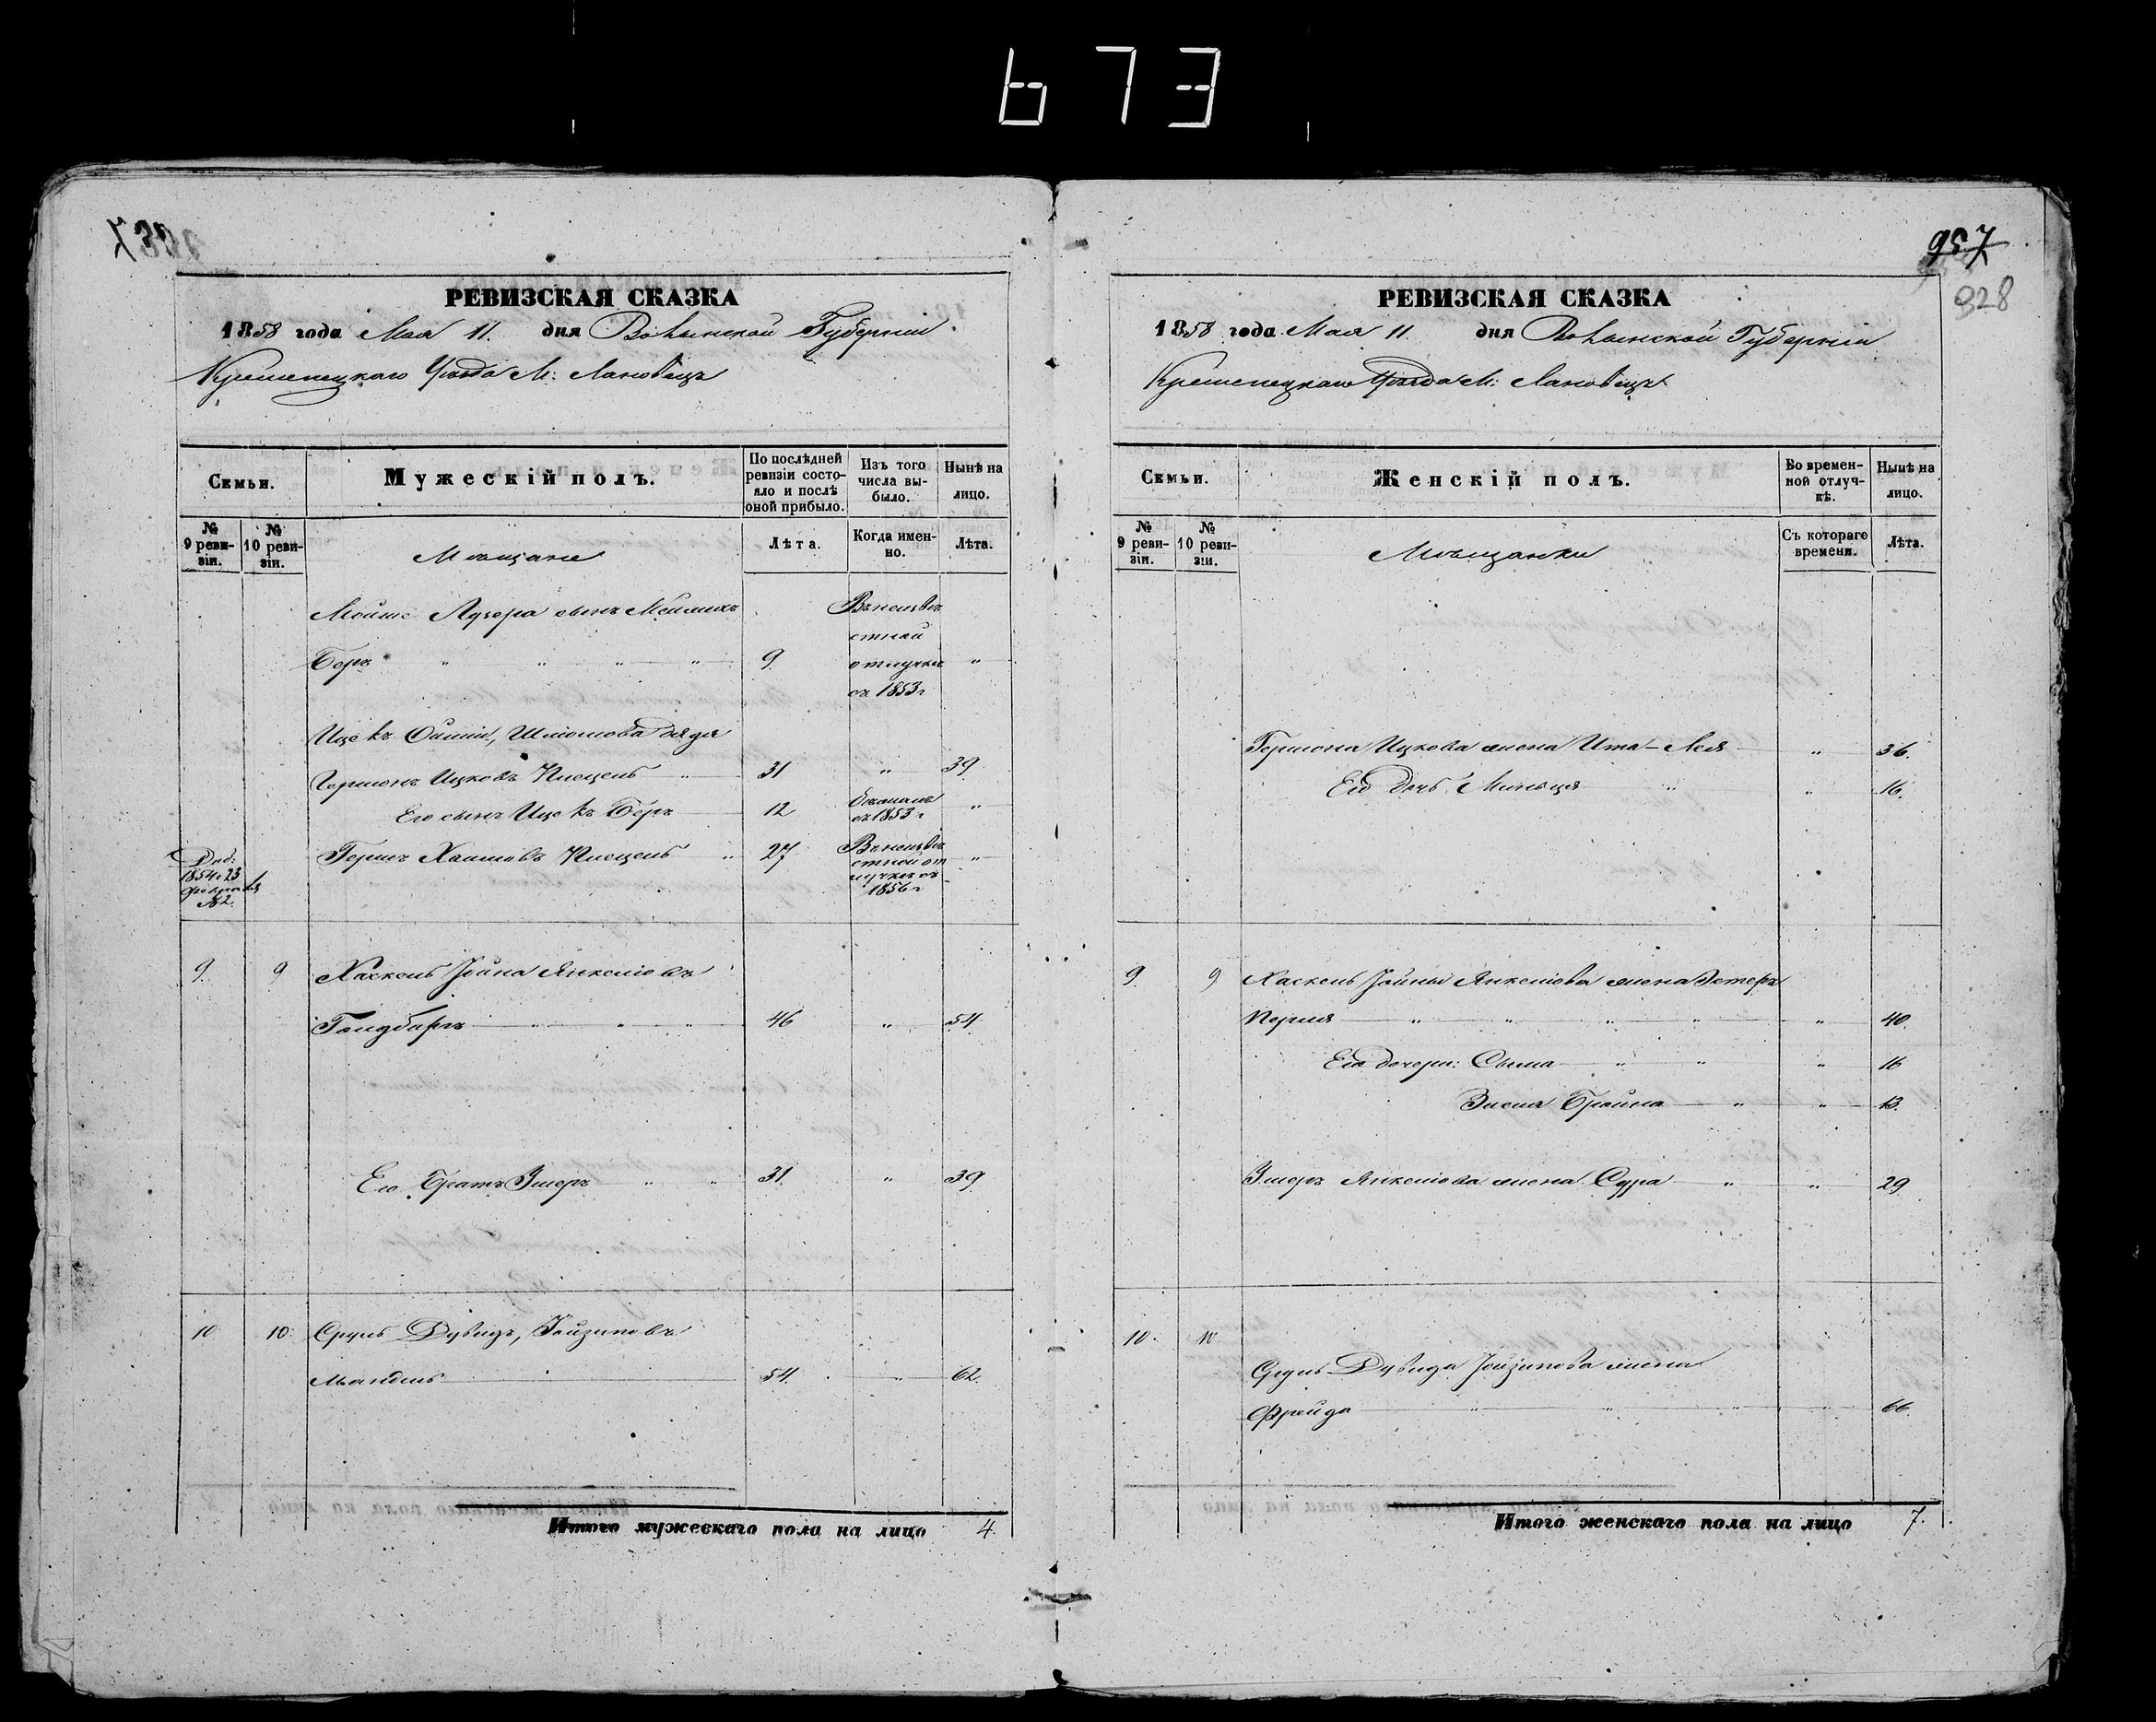 673
957
928
РЕВИЗСКАЯ СКАЗКА
1858 года Мая 11. дня Волынской Губерніи
Кременецкаго Уѣзда М: Лановець
Семьи.
Мужескій полъ.
По послѣдней ревизіи состояло и послѣ оной прибыло.
Изъ того числа выбыло.
Нынѣ на лицо.
№ 9 ревизіи.
№ 10 ревизіи.
Мѣщане
Лѣта.
Когда именно.
Лѣта.
Мойше Лузера сынъ Мейлихъ
Беръ 9. Въ неизвѣстной отлучкѣ съ 1853 г "
Ицекъ Шліомова дядя
Гершонъ Ицковъ 31 " 39
Его сынъ Ицекъ Беръ 12 съ 1853 г "
1854 г 23 февраля №2.
Гершъ Хаимовъ 27 Въ неизвѣстной отлучкѣ съ 1856 г "
9. 9 Хаскель Іойна Янкеліовъ
Голдбергъ 46 " 54
Его Братъ Ушеръ 31. " 39
10 10. Сруль Дувидъ, Іойзиповъ
Мандель 54. " 62.
Итого мужескаго пола на лицо 4.
РЕВИЗСКАЯ СКАЗКА
1858 года Мая 11. дня Волынской Губерніи
Кременецкаго Уѣзда М: Лановець
Семьи.
Женскій полъ.
Во временной отлучкѣ.
Нынѣ на лицо.
№ 9 ревизіи.
№ 10 ревизіи.
Мѣщанки
Съ котораго времени.
Лѣта.
Гершона Ицкова жена Ита-Лея " 36.
Его дочь Миньця " 16.
9. 9 Хаскель Іойны Янкеліова жена Эстеръ
Перля " 40.
Его дочери: Сыма " 16
Зисля Брайна " 13.
Ушеръ Янкеліова жена Сура " 29
10. 10 Сруль Дувида Іойзипова жена
Фрейда 66.
Итого женскаго пола на лицо 7.